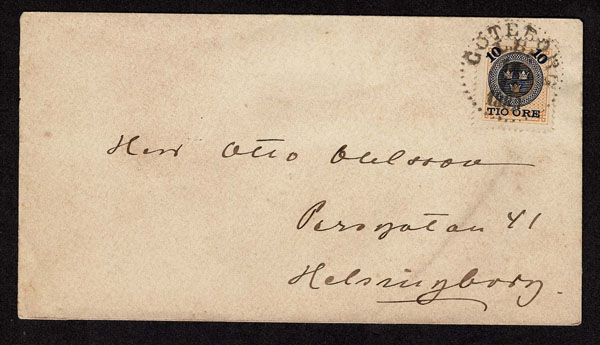 GÖTEBORG
10 10
TIO ÖRE
Herr Otto Ohlsson
Persgatan 41
Helsingborg.